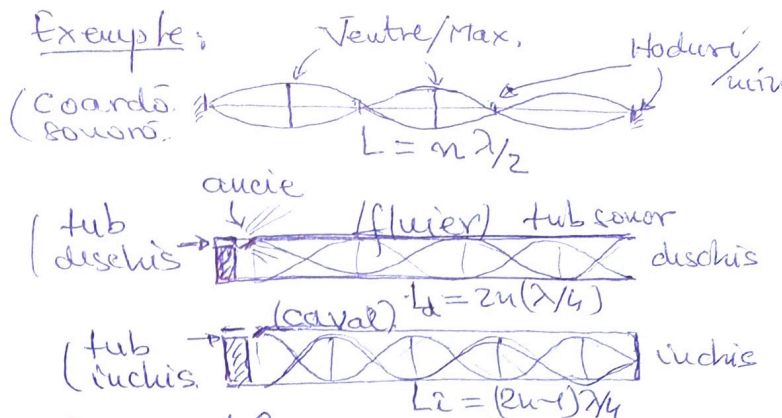 Exemple:
Ventre/Max.
Noduri/min
(coardă sonoră
L = n λ/2
ancie
(tub deschis
(fluier) tub sonor
deschis
Ld = 2n(λ/4)
(caval)
(tub închis
închis
Lî = (2n-1)λ/4